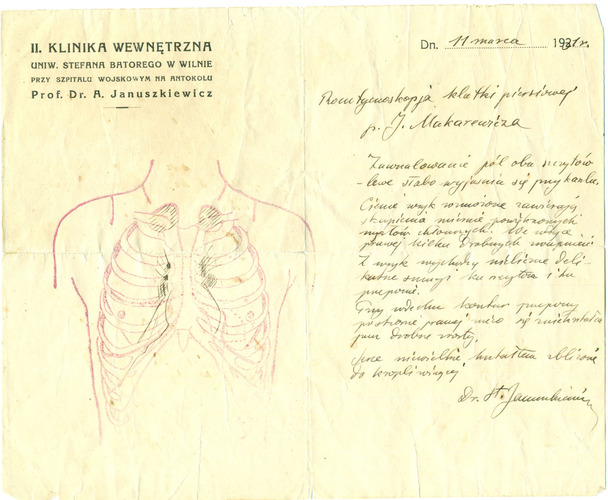 II. KLINIKA WEWNĘTRZNA
UNIW. STEFANA BATOREGO W WILNIE
PRZY SZPITALU WOJSKOWYM NA ANTOKOLU
Prof. Dr. A. Januszkiewicz
Dn. 11 marca 1931 r.
Roentgenoskopja klatki piersiowej
p. J. Makarewicza
Zawoalowanie pól obu szczytów
lewe słabo wyjaśnia się przy kaszlu.
Cienie wnęk wzmożone zawierają
skupienia miernie powiększonych
węzłów chłonnych. We wnęce
prawej kilka drobnych zwapnień
Z wnęk wychodzą nieliczne deli-
katne smugi ku szczytom i ku
przeponie.
Przy wdechu kontur przepony
po stronie prawej nieco się zniekształca
przez drobne zrosty.
Serce niewielkie kształtem zbliżone
do kroplи wiszącej
Dr. A. Januszkiewicz